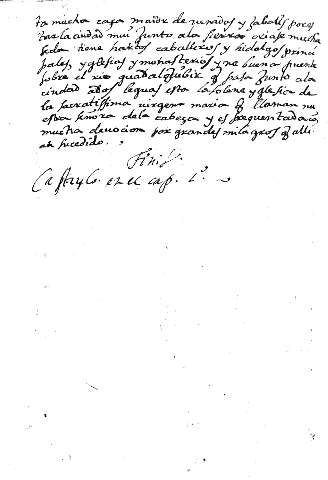 ta mucha caça maior de venados y jabalis por es
tar la ciudad mui junto a la sierra criase mucha
seda tiene hartos caballeros y hidalgos princi
pales yglesias y monasterios y ne buena puente
sobre el rio guadalquibir q pasa junto a la
ciudad a dos leguas esta la solene yglesia de
la sacratissima virgen maria q llaman nu
estra señora de la cabeça y es frequentada cõ
mucha devocion por grandes milagros q alli
an sucedido.
Finis.
en el cap. 1º.